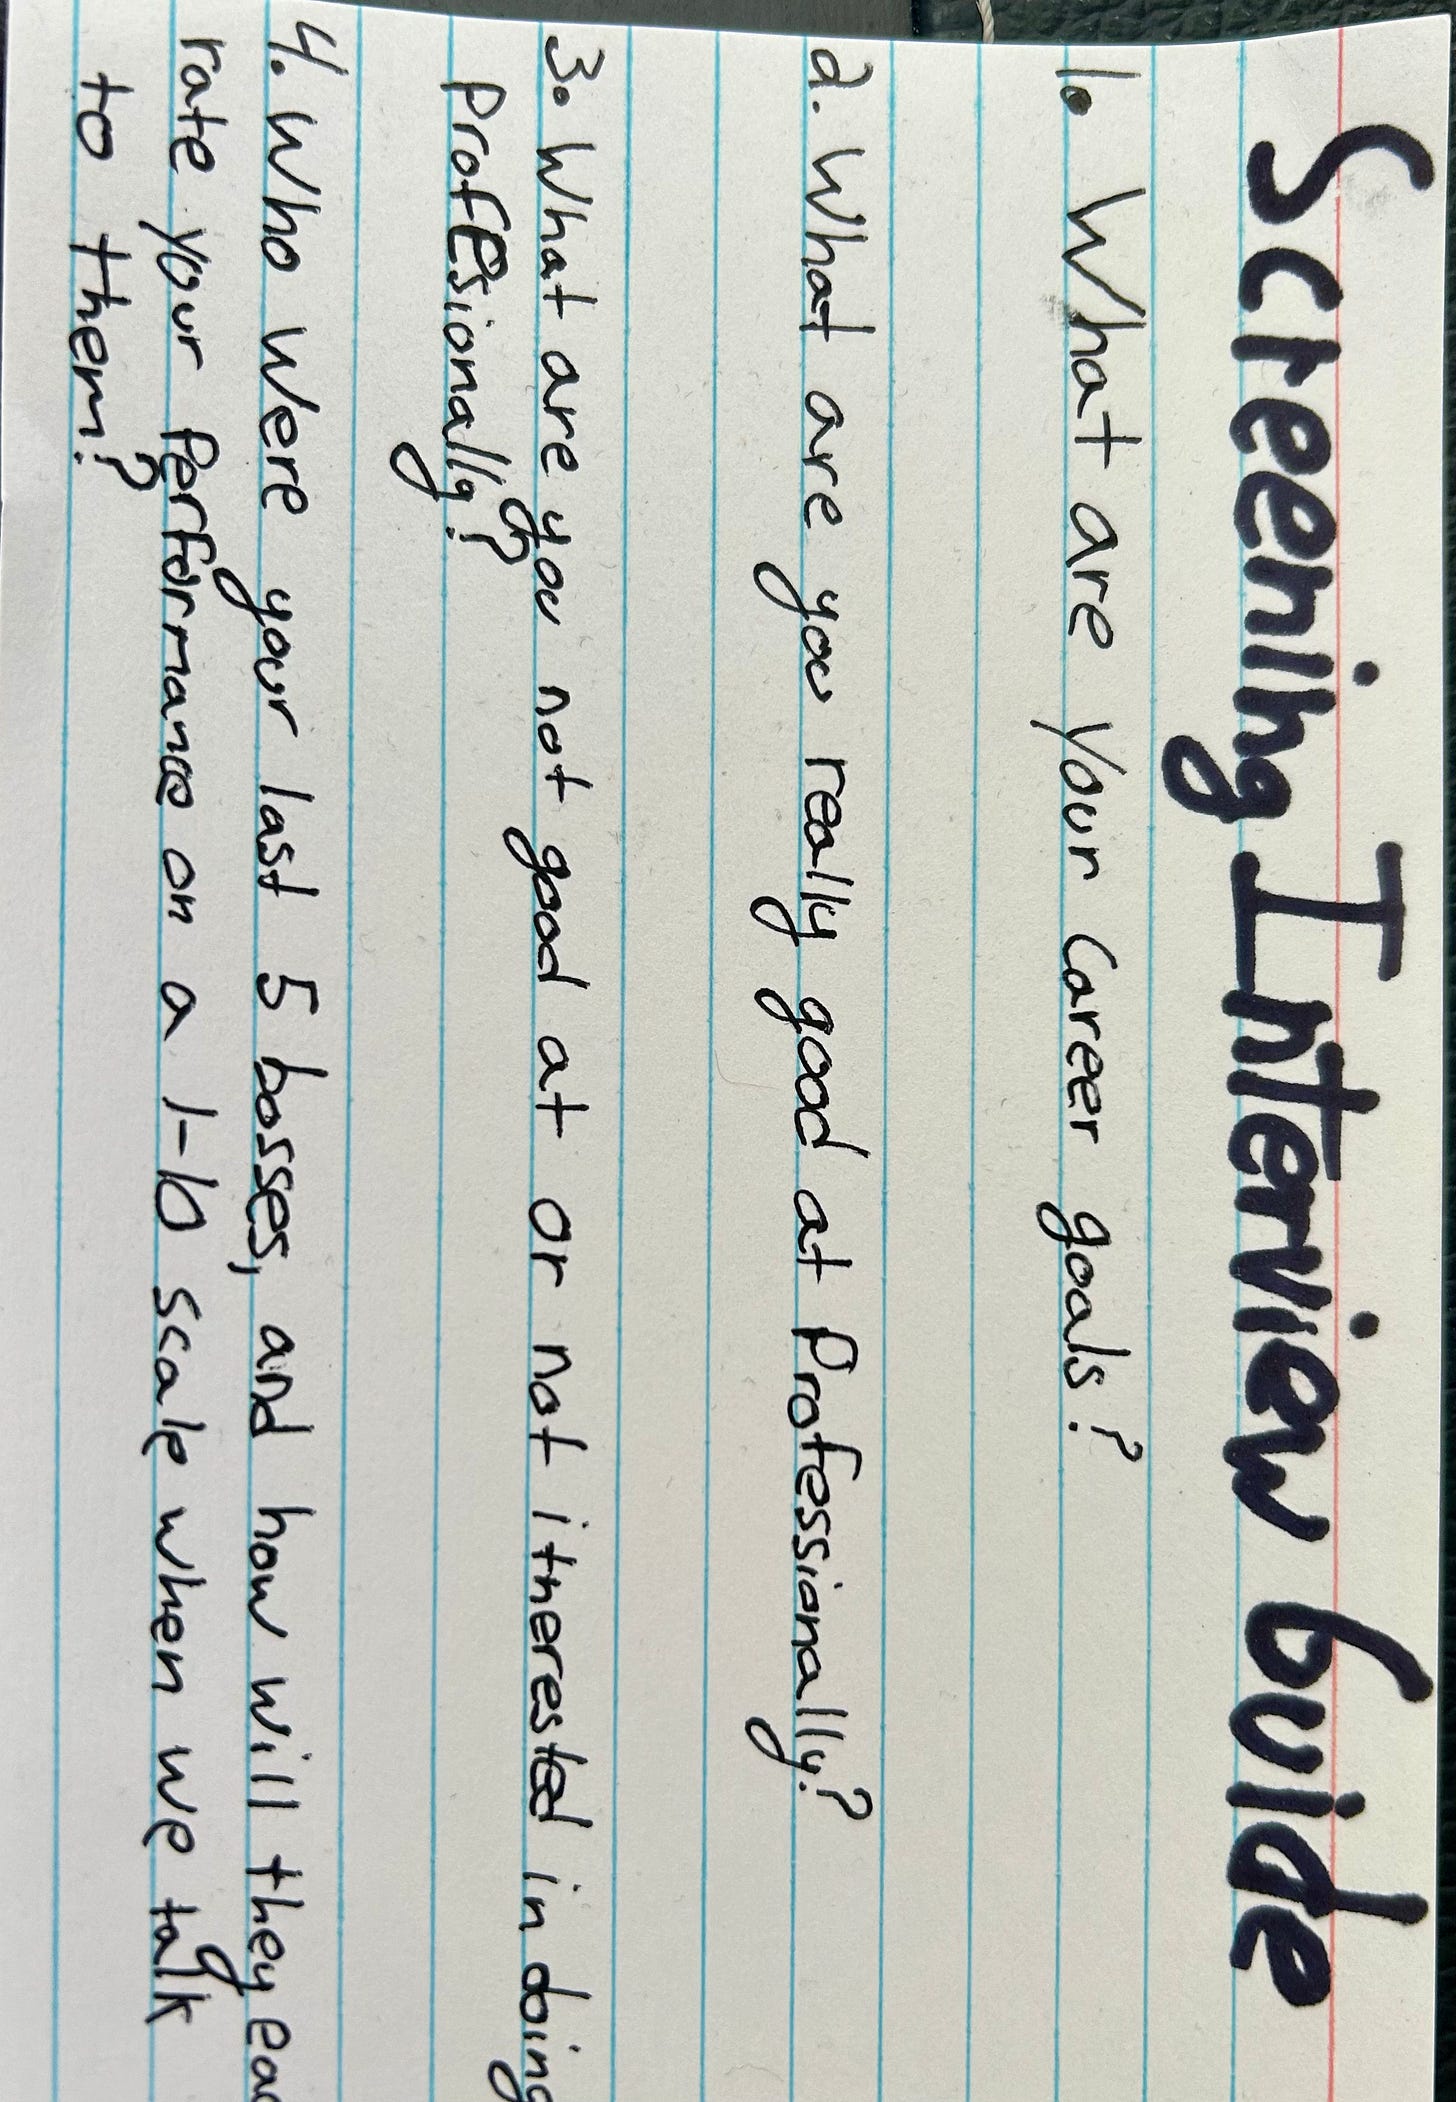 Screening Interview Guide
1. What are your career goals?
2. What are you really good at professionally?
3. What are you not good at or not itnerested in doing
profesionally?
4. Who were your last 5 bosses, and how will they eac
rate your performance on a 1-10 scale when we talk
to them?